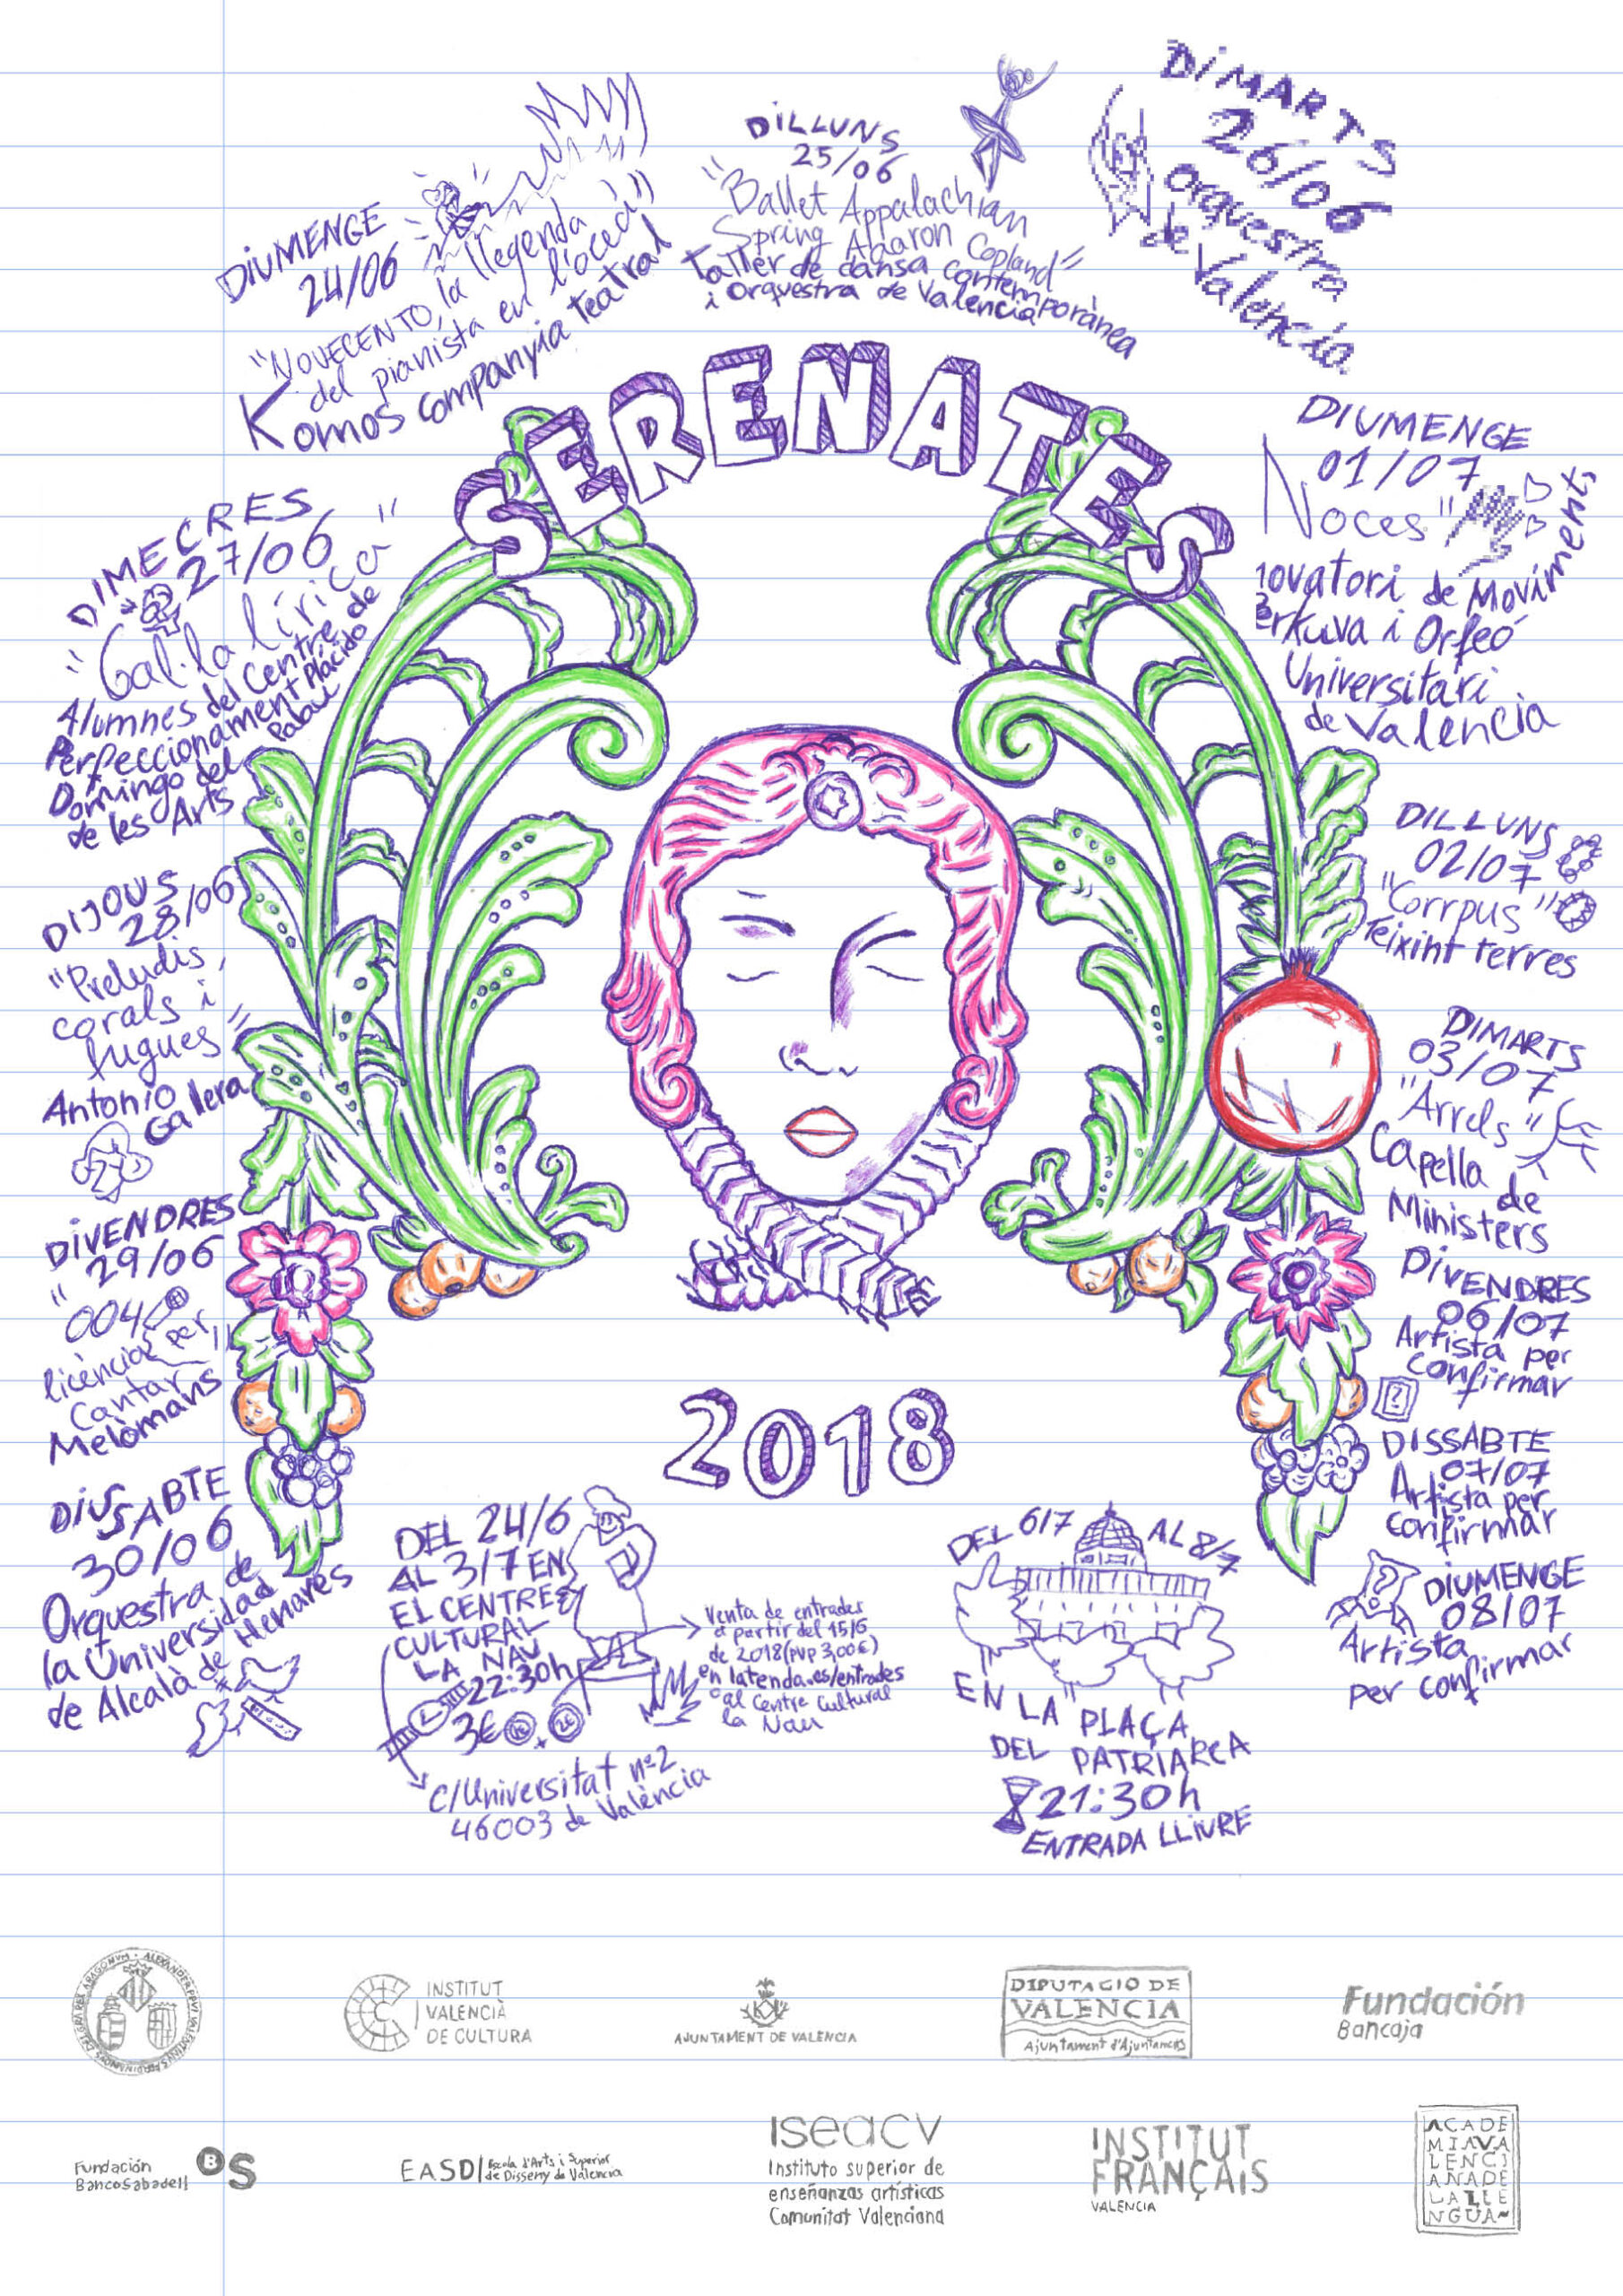 DIUMENGE
24/06
"NOVECENTO, la llegenda
del pianista en l'oceà"
Komos companyia teatral
DILLUNS
25/06
"Ballet Appalachian
Spring Aaaron Copland"
Taller de dansa contemporànea
i Orquestra de Valencia
DIMARTS
26/06
orquestra
de Valencia
SERENATES
DIMECRES
27/06
"Gal·la lírica"
Alumnes del Centre de
Perfeccionament Plácido
Domingo del Palau
de les Arts
DIJOUS
28/06
"Preludis,
corals i
fugues"
Antonio
Galera
DIVENDRES
29/06
"004
llicència per
Cantar"
Melòmans
DISSABTE
30/06
Orquestra de
la Universidad
de Alcalà de Henares
DIUMENGE
01/07
Noces"
novatori de Moviments
erkuva i Orfeó
Universitari
de Valencia
DILLUNS
02/07
"Corrpus"
Teixint terres
DIMARTS
03/07
"Arrels"
Capella
de
Ministers
DIVENDRES
06/07
Artista per
confirmar
?
DISSABTE
07/07
Artista per
confirmar
?
DIUMENGE
08/07
Artista
per confirmar
2018
DEL 24/6
AL 3/7 EN
EL CENTRE
CULTURAL
LA NAU
22:30h
3€
C/Universitat nº2
46003 de València
Venta de entrades
a partir del 15/6
de 2018 (PVP 3,00€)
en latenda.es/entrades
o al Centre Cultural
la Nau
DEL 6/7 AL 8/7
EN LA PLAÇA
DEL PATRIARCA
21:30h
ENTRADA LLIURE
INSTITUT
VALENCIÀ
DE CULTURA
AJUNTAMENT DE VALENCIA
DIPUTACIO DE
VALENCIA
Ajuntament d'Ajuntaments
Fundación
Bancaja
Fundación
BancoSabadell
BS
EASD
Escola d'Arts i Superior
de Disseny de Valencia
ISEACV
Instituto superior de
enseñanzas artísticas
Comunitat Valenciana
INSTITUT
FRANÇAIS
VALENCIA
ACADE
MIAVA
LENCI
ANADE
LALLE
NGUA